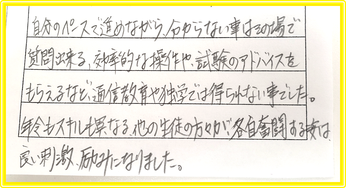 自分のペースで進めながら、分からない事はその場で
質問出来る、効率的な操作や、試験のアドバイスを
もらえるなど、通信教育や独学では得られない事でした。
年令もスキルも異なる、他の生徒の方々が、各自奮闘する姿は
良い刺激、励みになりました。